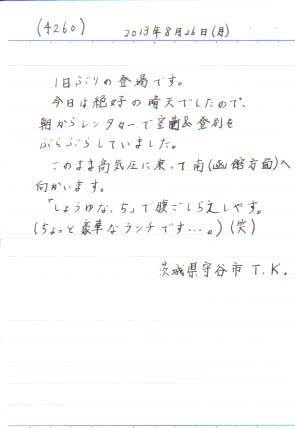 (4260) 2013年8月26日(月)
1日ぶりの登場です。
今日は絶好の晴天でしたので、
朝からレンタカーで室蘭&登別を
ぶらぶらしていました。
このまま高気圧に乗って南(函館方面)へ
向かいます。
「しょうゆな、ら」で腹ごしらえしやす。
(ちょっと豪華なランチです…。)(笑)
茨城県守谷市 T.K.